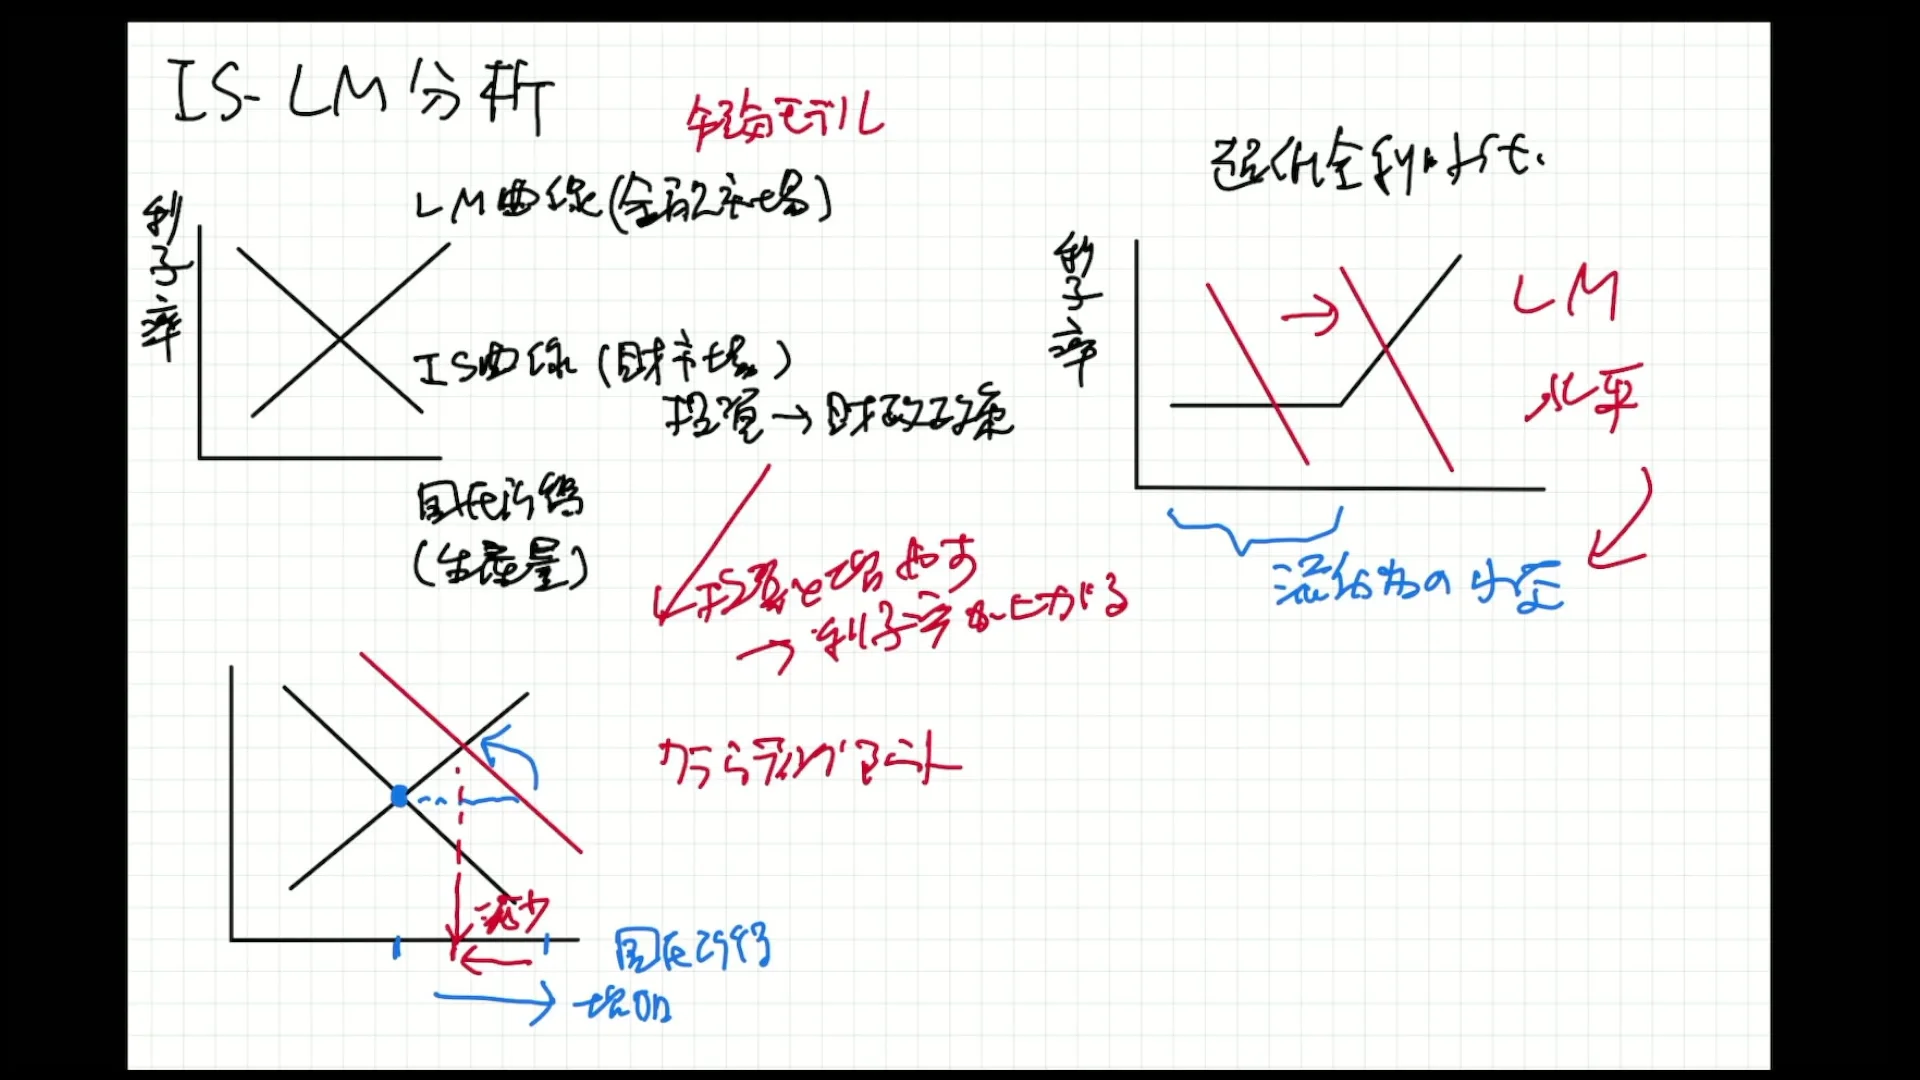 IS-LM分析
LM曲線(金融市場)
利子率
IS曲線(財市場)
投資→財政政策
国民所得
(生産量)
投資を増やす
→利子率が上がる
クラウディングアウト
減少
国民所得
増加
超低金利
利子率
LM
水平
流動性の